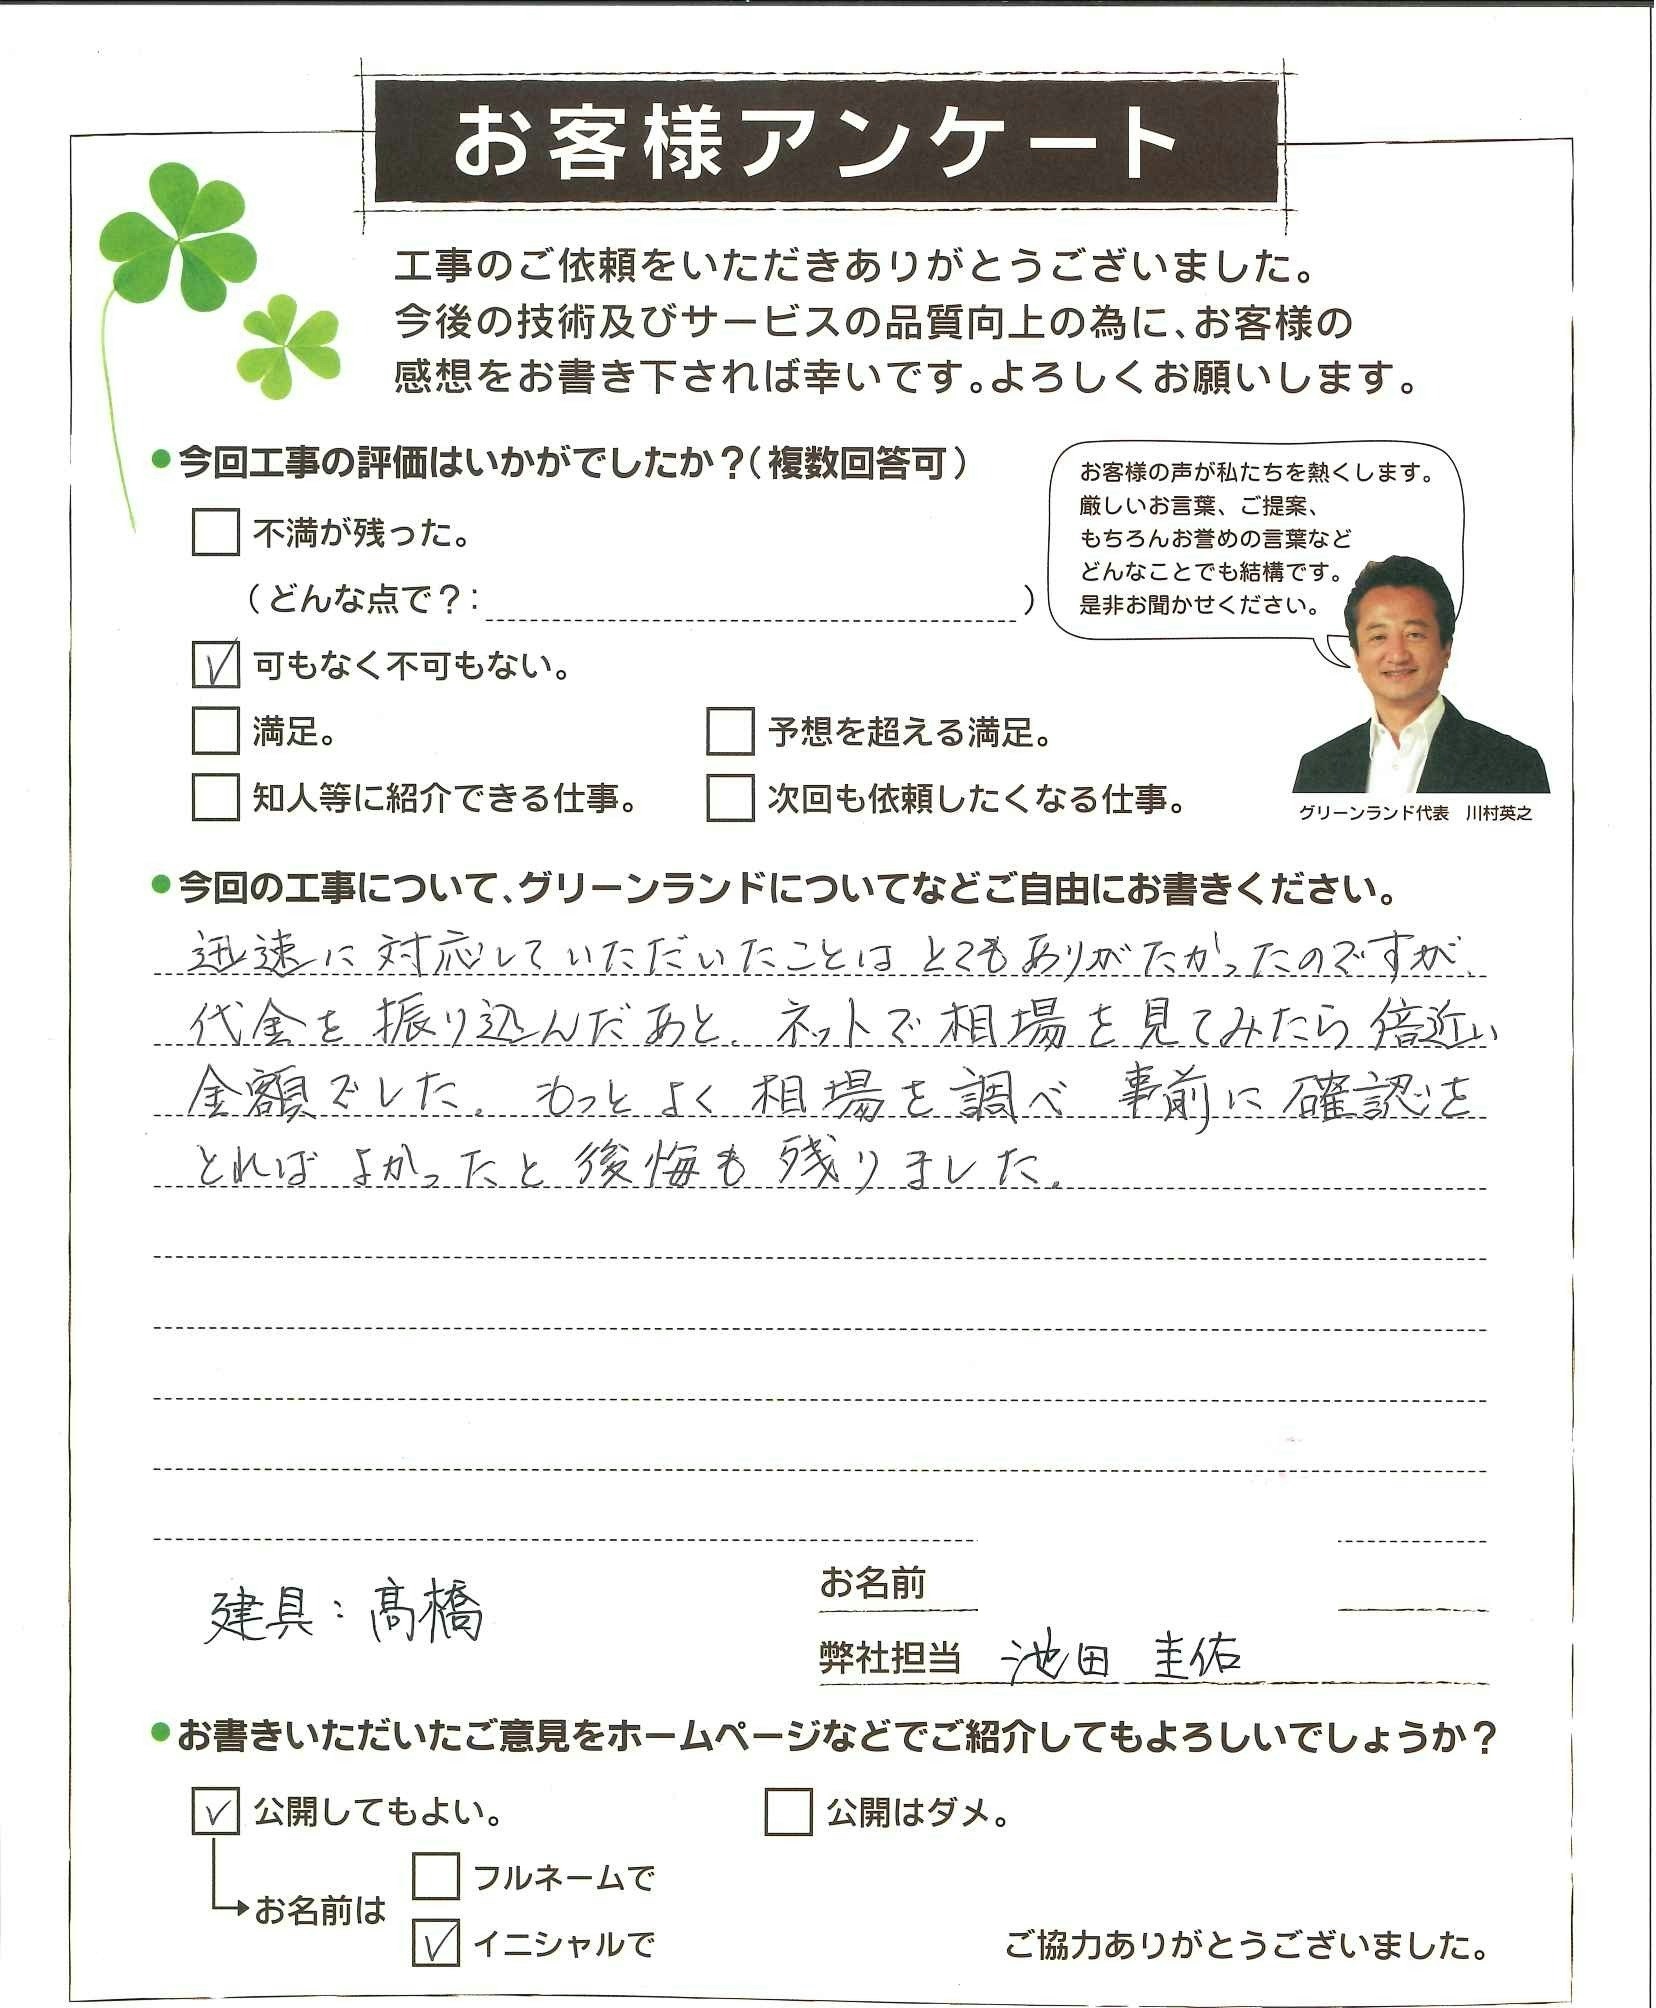 お客様アンケート
工事のご依頼をいただきありがとうございました。
今後の技術及びサービスの品質向上の為に、お客様の
感想をお書き下されば幸いです。よろしくお願いします。
●今回工事の評価はいかがでしたか？（複数回答可）
お客様の声が私たちを熱くします。
厳しいお言葉、ご提案、
もちろんお誉めの言葉など
どんなことでも結構です。
是非お聞かせください。
不満が残った。
（どんな点で？：　）
可もなく不可もない。
満足。
予想を超える満足。
知人等に紹介できる仕事。
次回も依頼したくなる仕事。
グリーンランド代表　川村英之
●今回の工事について、グリーンランドについてなどご自由にお書きください。
迅速に対応していただいたことはとてもありがたかったのですが、
代金を振り込んだあと、ネットで相場を見てみたら倍近い
金額でした。もっとよく相場を調べ 事前に確認を
とればよかったと後悔も残りました。
建具：髙橋
お名前
弊社担当 池田 圭佑
●お書きいただいたご意見をホームページなどでご紹介してもよろしいでしょうか？
公開してもよい。
公開はダメ。
お名前は
フルネームで
イニシャルで
ご協力ありがとうございました。